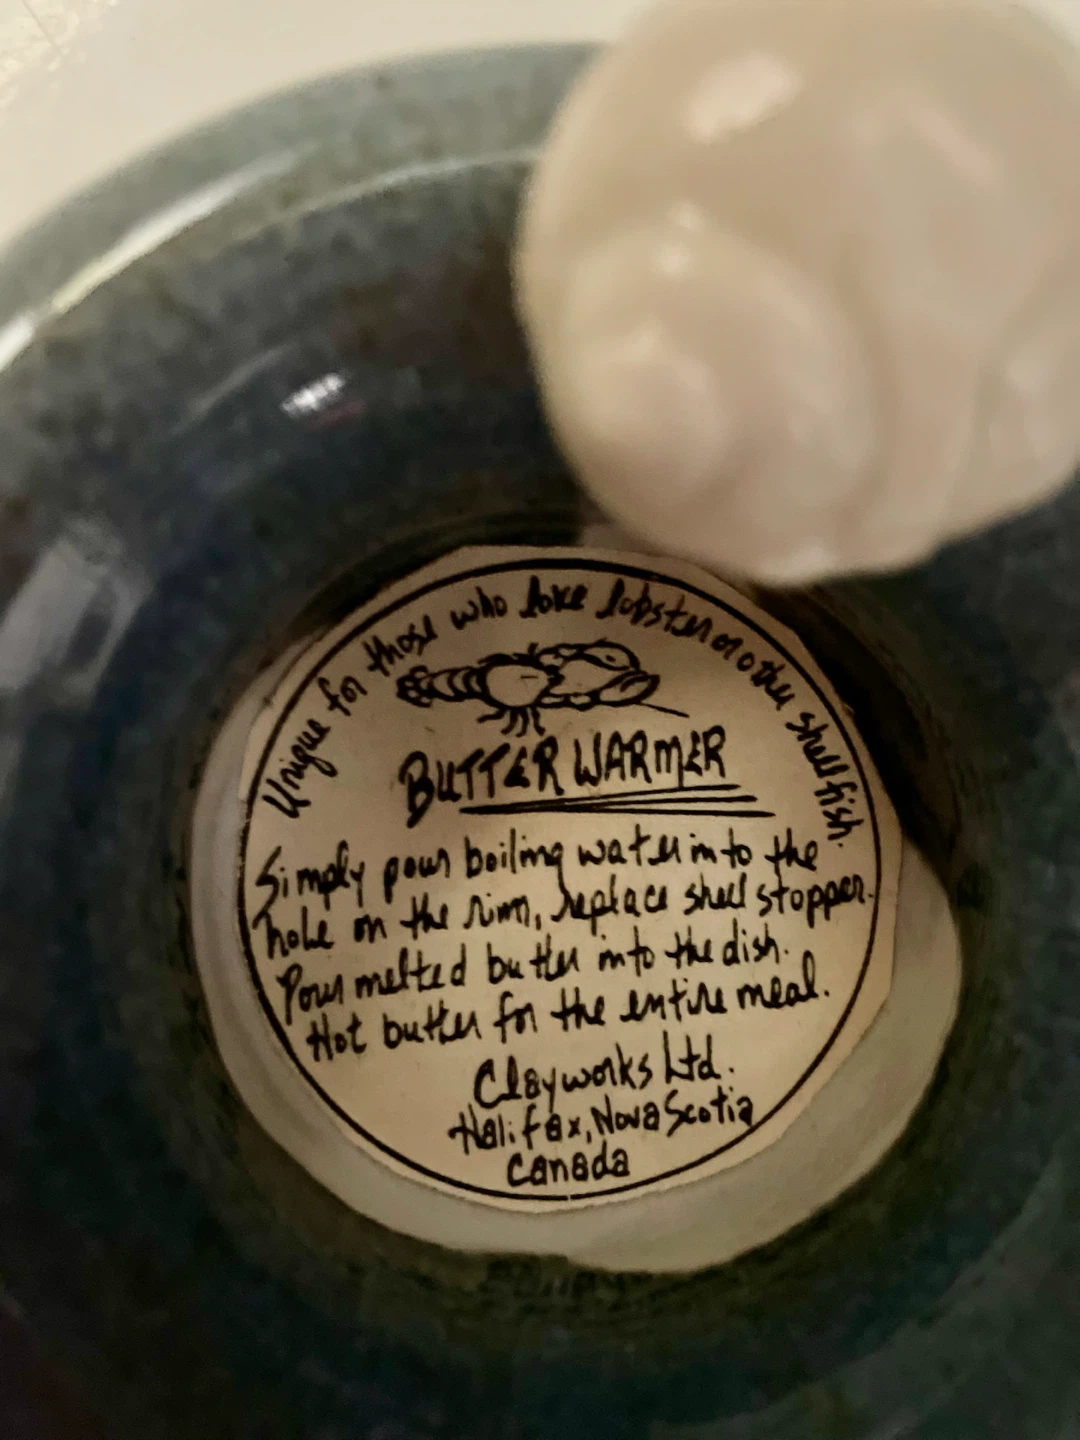 Unique for those who love lobster or other shell fish.
BUTTER WARMER
Simply pour boiling water into the
hole on the rim, replace shell stopper.
Pour melted butter into the dish.
Hot butter for the entire meal.
Clayworks Ltd.
Halifax, Nova Scotia
Canada